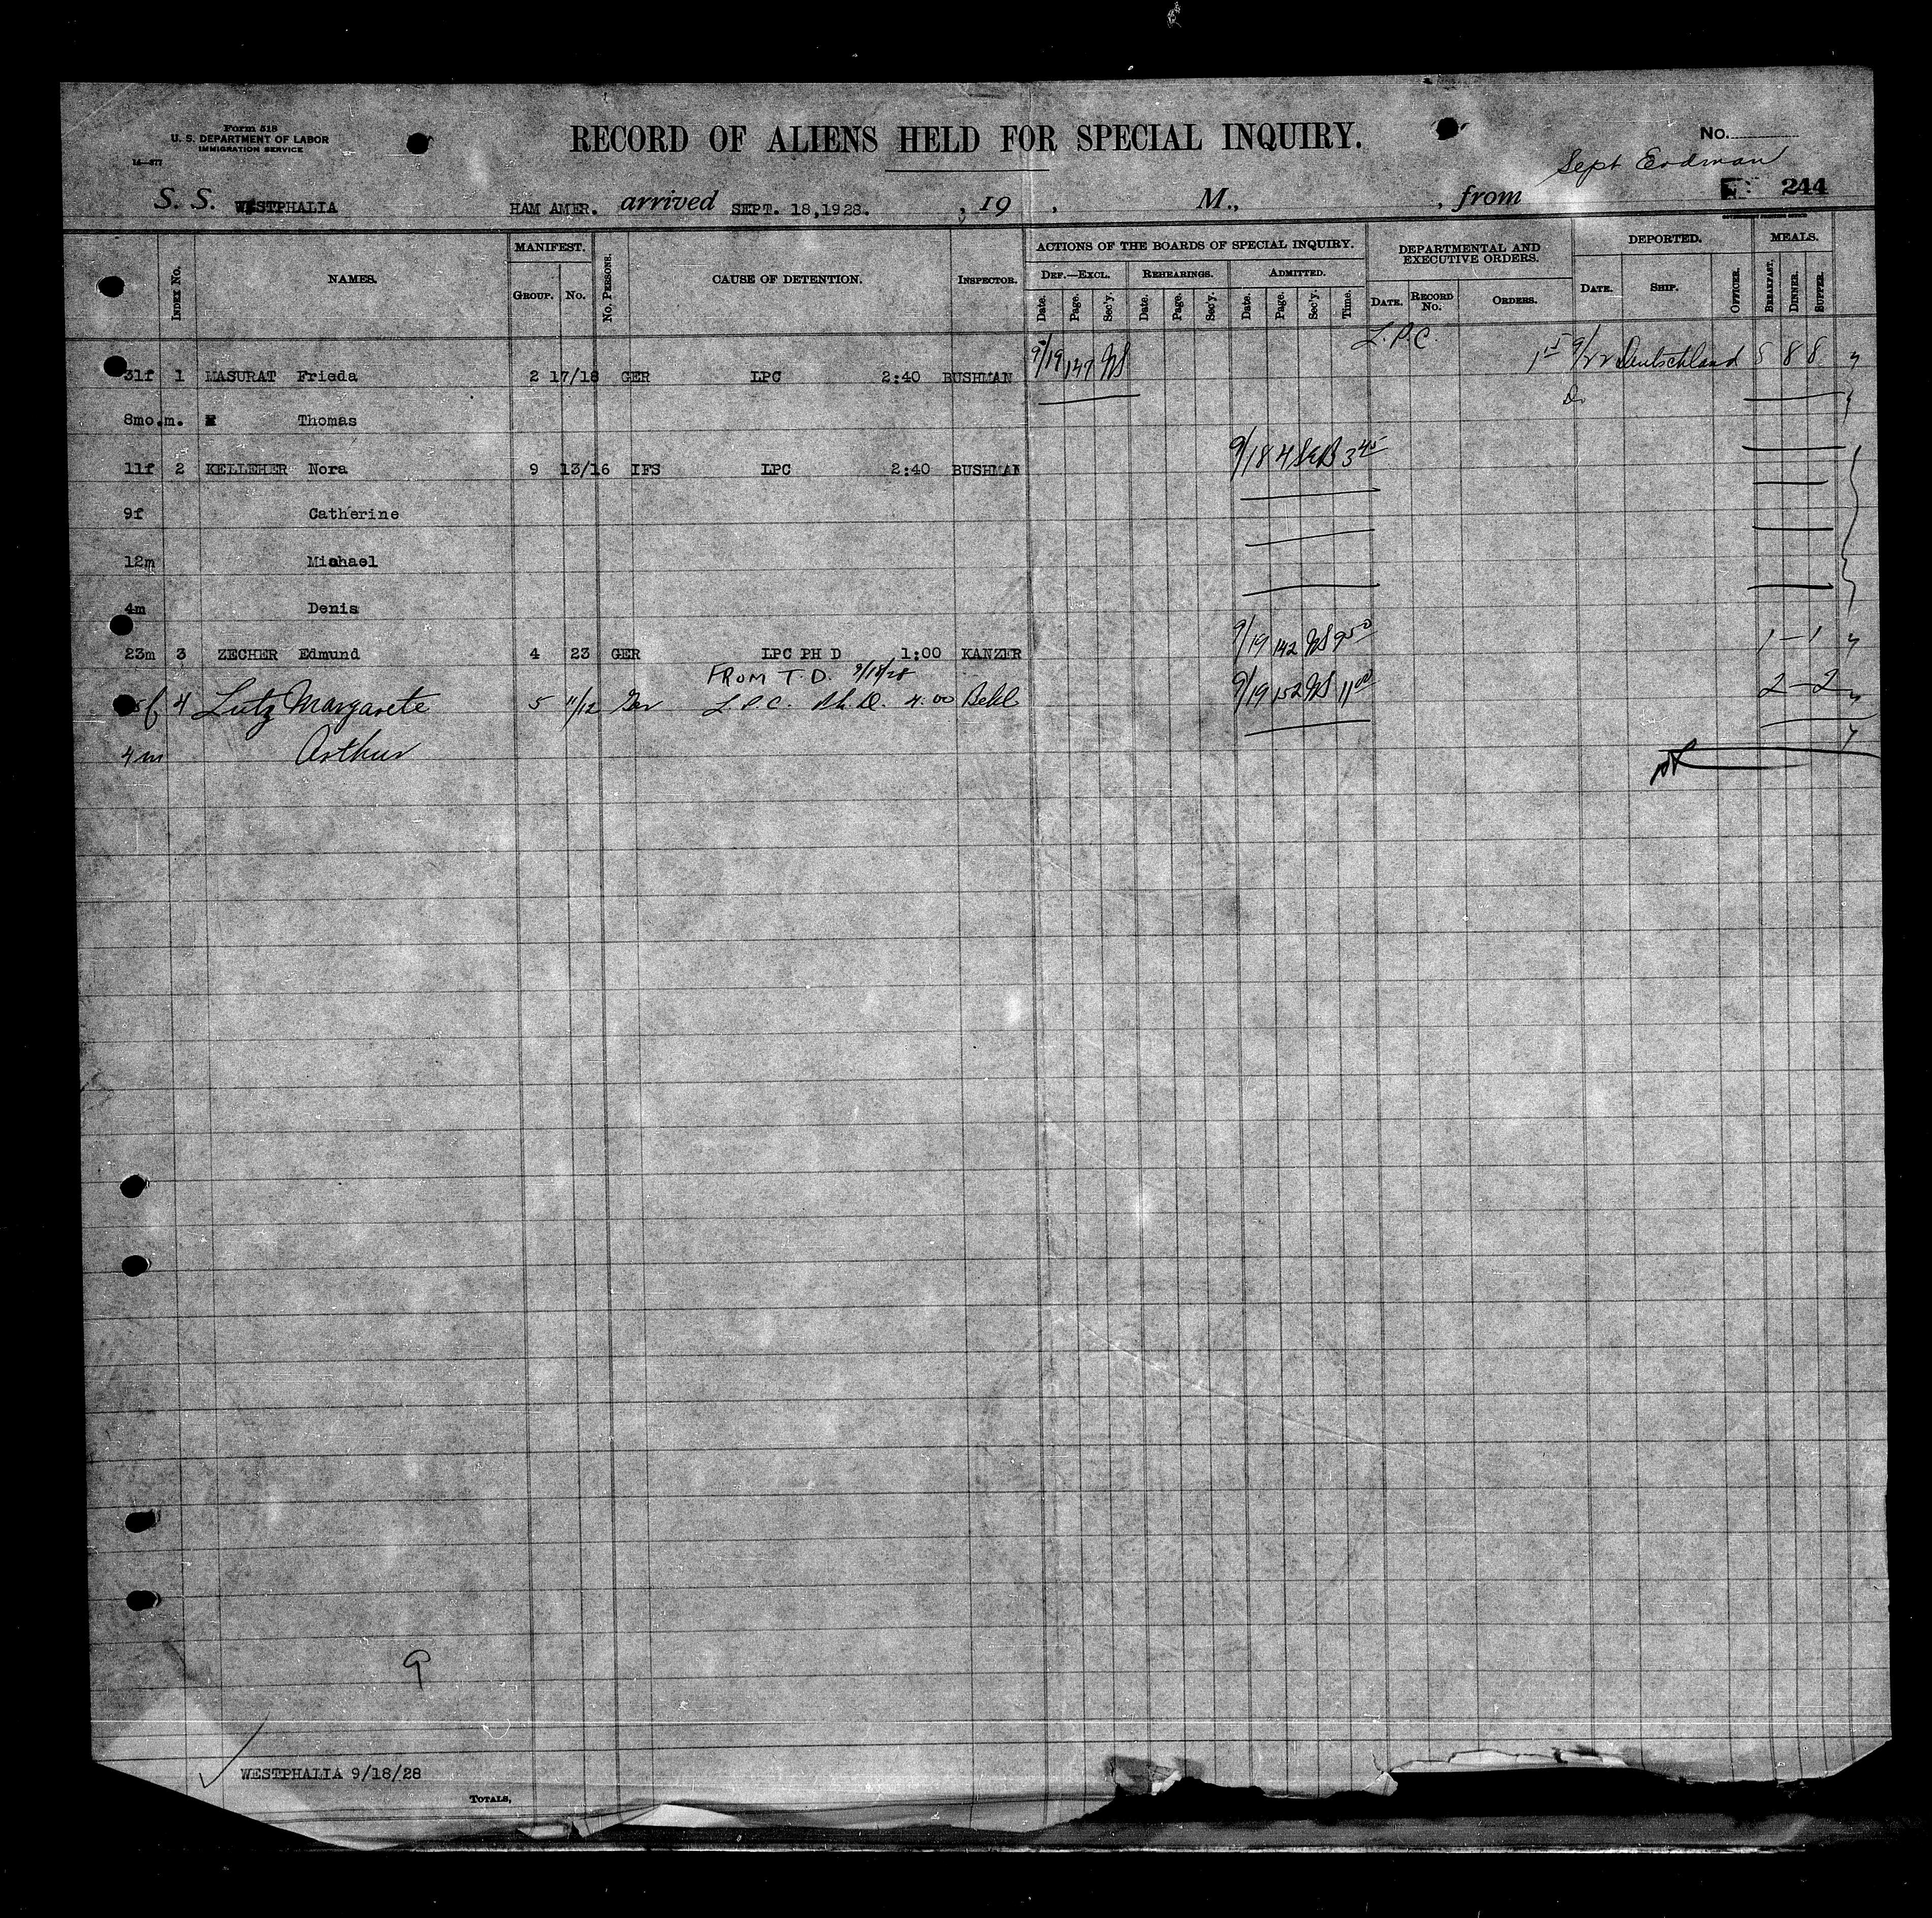 Form 518
U. S. DEPARTMENT OF LABOR
IMMIGRATION SERVICE
14—877
RECORD OF ALIENS HELD FOR SPECIAL INQUIRY.
No.
Sept
S. S. WESTPHALIA HAM AMER. arrived SEPT. 18,1928. , 19 , M., , from 244
INDEX No. NAMES. MANIFEST. GROUP. No. No. PERSONS. CAUSE OF DETENTION. INSPECTOR. ACTIONS OF THE BOARDS OF SPECIAL INQUIRY. DEF.—EXCL. Date. Page. Sec'y. REHEARINGS. Date. Page. Sec'y. ADMITTED. Date. Page. Sec'y. Time. DEPARTMENTAL AND EXECUTIVE ORDERS. DATE. RECORD No. ORDERS. DEPORTED. DATE. SHIP. OFFICER. MEALS. BREAKFAST. DINNER. SUPPER.
L.P.C.
31f 1 MASURAT Frieda 2 17/18 GER LPC 2:40 BUSHMAN 9/19 147 WS 1 15 9/22 Deutschland 5 8 8
8mo.m. Thomas Do
11f 2 KELLEHER Nora 9 13/16 IFS LPC 2:40 BUSHMAN 9/18 4 SEB 3 45
9f Catherine
12m Michael
4m Denis
23m 3 ZECHER Edmund 4 23 GER LPC PH D 1:00 KANZER 9/19 142 WS 9 50 1 – 1
FROM T.D. 9/18/28
f 4 Lutz Margarete 5 11/12 Ger L.P.C. Ph.D. 4.00 9/19 152 WS 11 00 2 – 2
4m Arthur
9
WESTPHALIA 9/18/28
TOTALS,